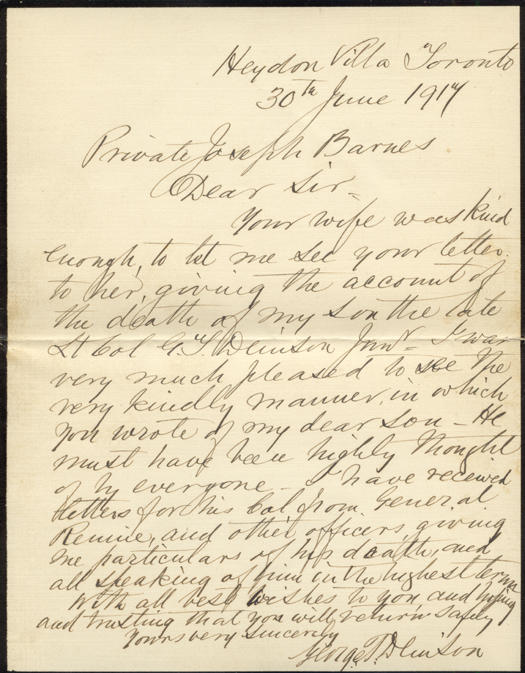 Heydon Villa Toronto
30th June 1917
Private Joseph Barnes
Dear Sir-
Your wife was kind
enough, to let me see your letter
to her, giving the account of
the death of my son the late
Lt Col G.T. Denison Junr - I was
very much pleased to see the
very kindly manner, in which
you wrote of my dear son - He
must have been highly thought
of by everyone - I have received
letters for his Col from General
and other officers giving
me particulars of his death, and
all speaking of him in the highest terms
With all best wishes to you and hoping
and trusting that you will return safely
Yours very sincerely
George T. Denison